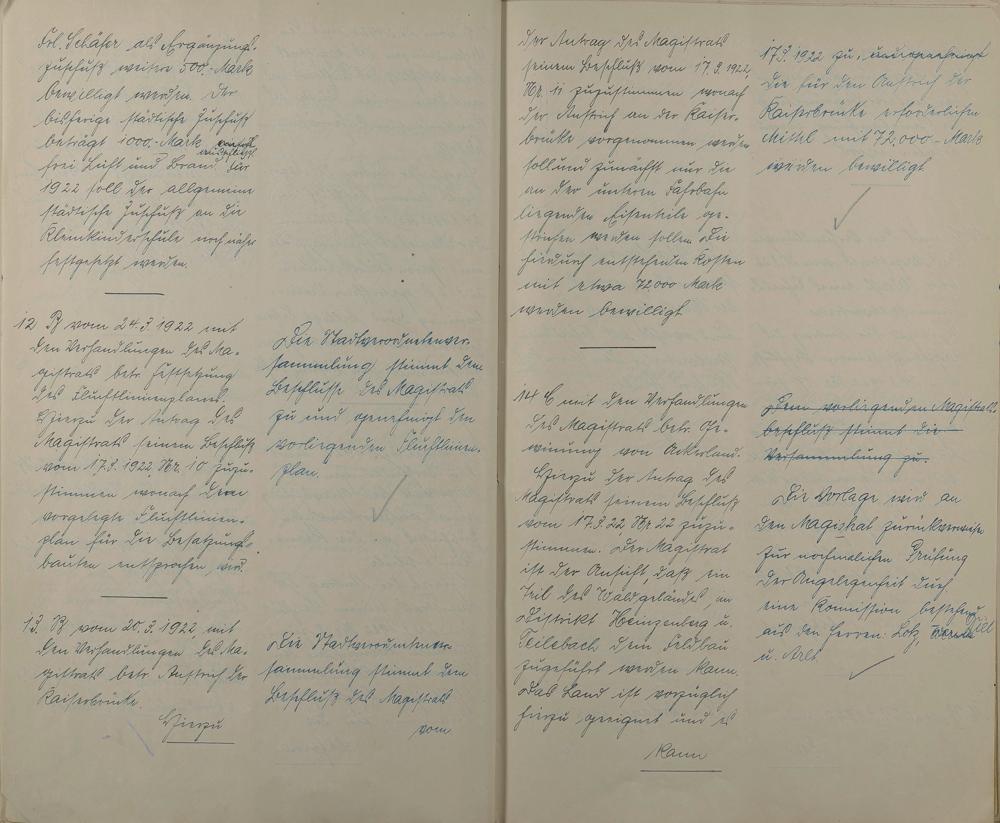 Frl. Schäfer als Ergänzungs-
zuschuß weitere 500.- Mark
bewilligt werden. Der
bisherige städtische Zuschuß
beträgt 1000.- Mark
frei Licht und Brand. Für
1922 soll der allgemeine
städtische Zuschuß an die
Kleinkinderschule noch näher
festgesetzt werden.
12 B vom 24.3.1922 mit
den Verhandlungen des Ma-
gistrats betr. Festsetzung
des Fluchtlinienplanes.
Hierzu der Antrag des
Magistrats seinem Beschluß
vom 17.3.1922 Nr. 10 zuzu-
stimmen wonach dem
vorgelegte Fluchtlinien-
plan für die Besatzungs-
bauten entsprochen wird.
13. B vom 20.3.1922 mit
den Verhandlungen des Ma-
gistrats betr. Anstrich der
Kaiserbrücke.
Hierzu
Die Stadtverordnetenver-
sammlung stimmt dem
Beschlusse des Magistrats
zu und genehmigt den
vorliegenden Fluchtlinien-
plan.
Die Stadtverordnetenver-
sammlung stimmt dem
Beschluß des Magistrats
vom
der Antrag des Magistrats
seinem Beschluß vom 17.3.1922
Nr. 11 zuzustimmen wonach
der Anstrich an der Kaiser-
brücke vorgenommen werden
soll und zunächst nur die
an der unteren Fahrbahn
liegenden Eisenteile ge-
strichen werden sollen. Die
hiedurch entstehenden Kosten
mit etwa 72,000 Mark
werden bewilligt
17.3.1922 zu,
die für den Anstrich der
Kaiserbrücke erforderlichen
Mittel mit 72,000.- Mark
werden bewilligt
14 C mit den Verhandlungen
des Magistrats betr. Ge-
winnung von Ackerland.
Hierzu der Antrag des
Magistrats seinem Beschluß
vom 17.3.22 Nr. 22 zuzu-
stimmen. Der Magistrat
ist der Ansicht daß ein
Teil des Waldgeländes, im
Distrikt u.
dem Feldbau
zugeführt werden kann.
Das Land ist vorzüglich
hierzu geeignet und es
kann
Dem vorliegenden Magistrats-
beschluß stimmt die
Versammlung zu.
Die Vorlage wird an
den Magistrat zurückverwiesen
zur nochmaligen Prüfung
der Angelegenheit durch
eine Kommission bestehend
aus den Herren: Lotz,
u. Arlt.